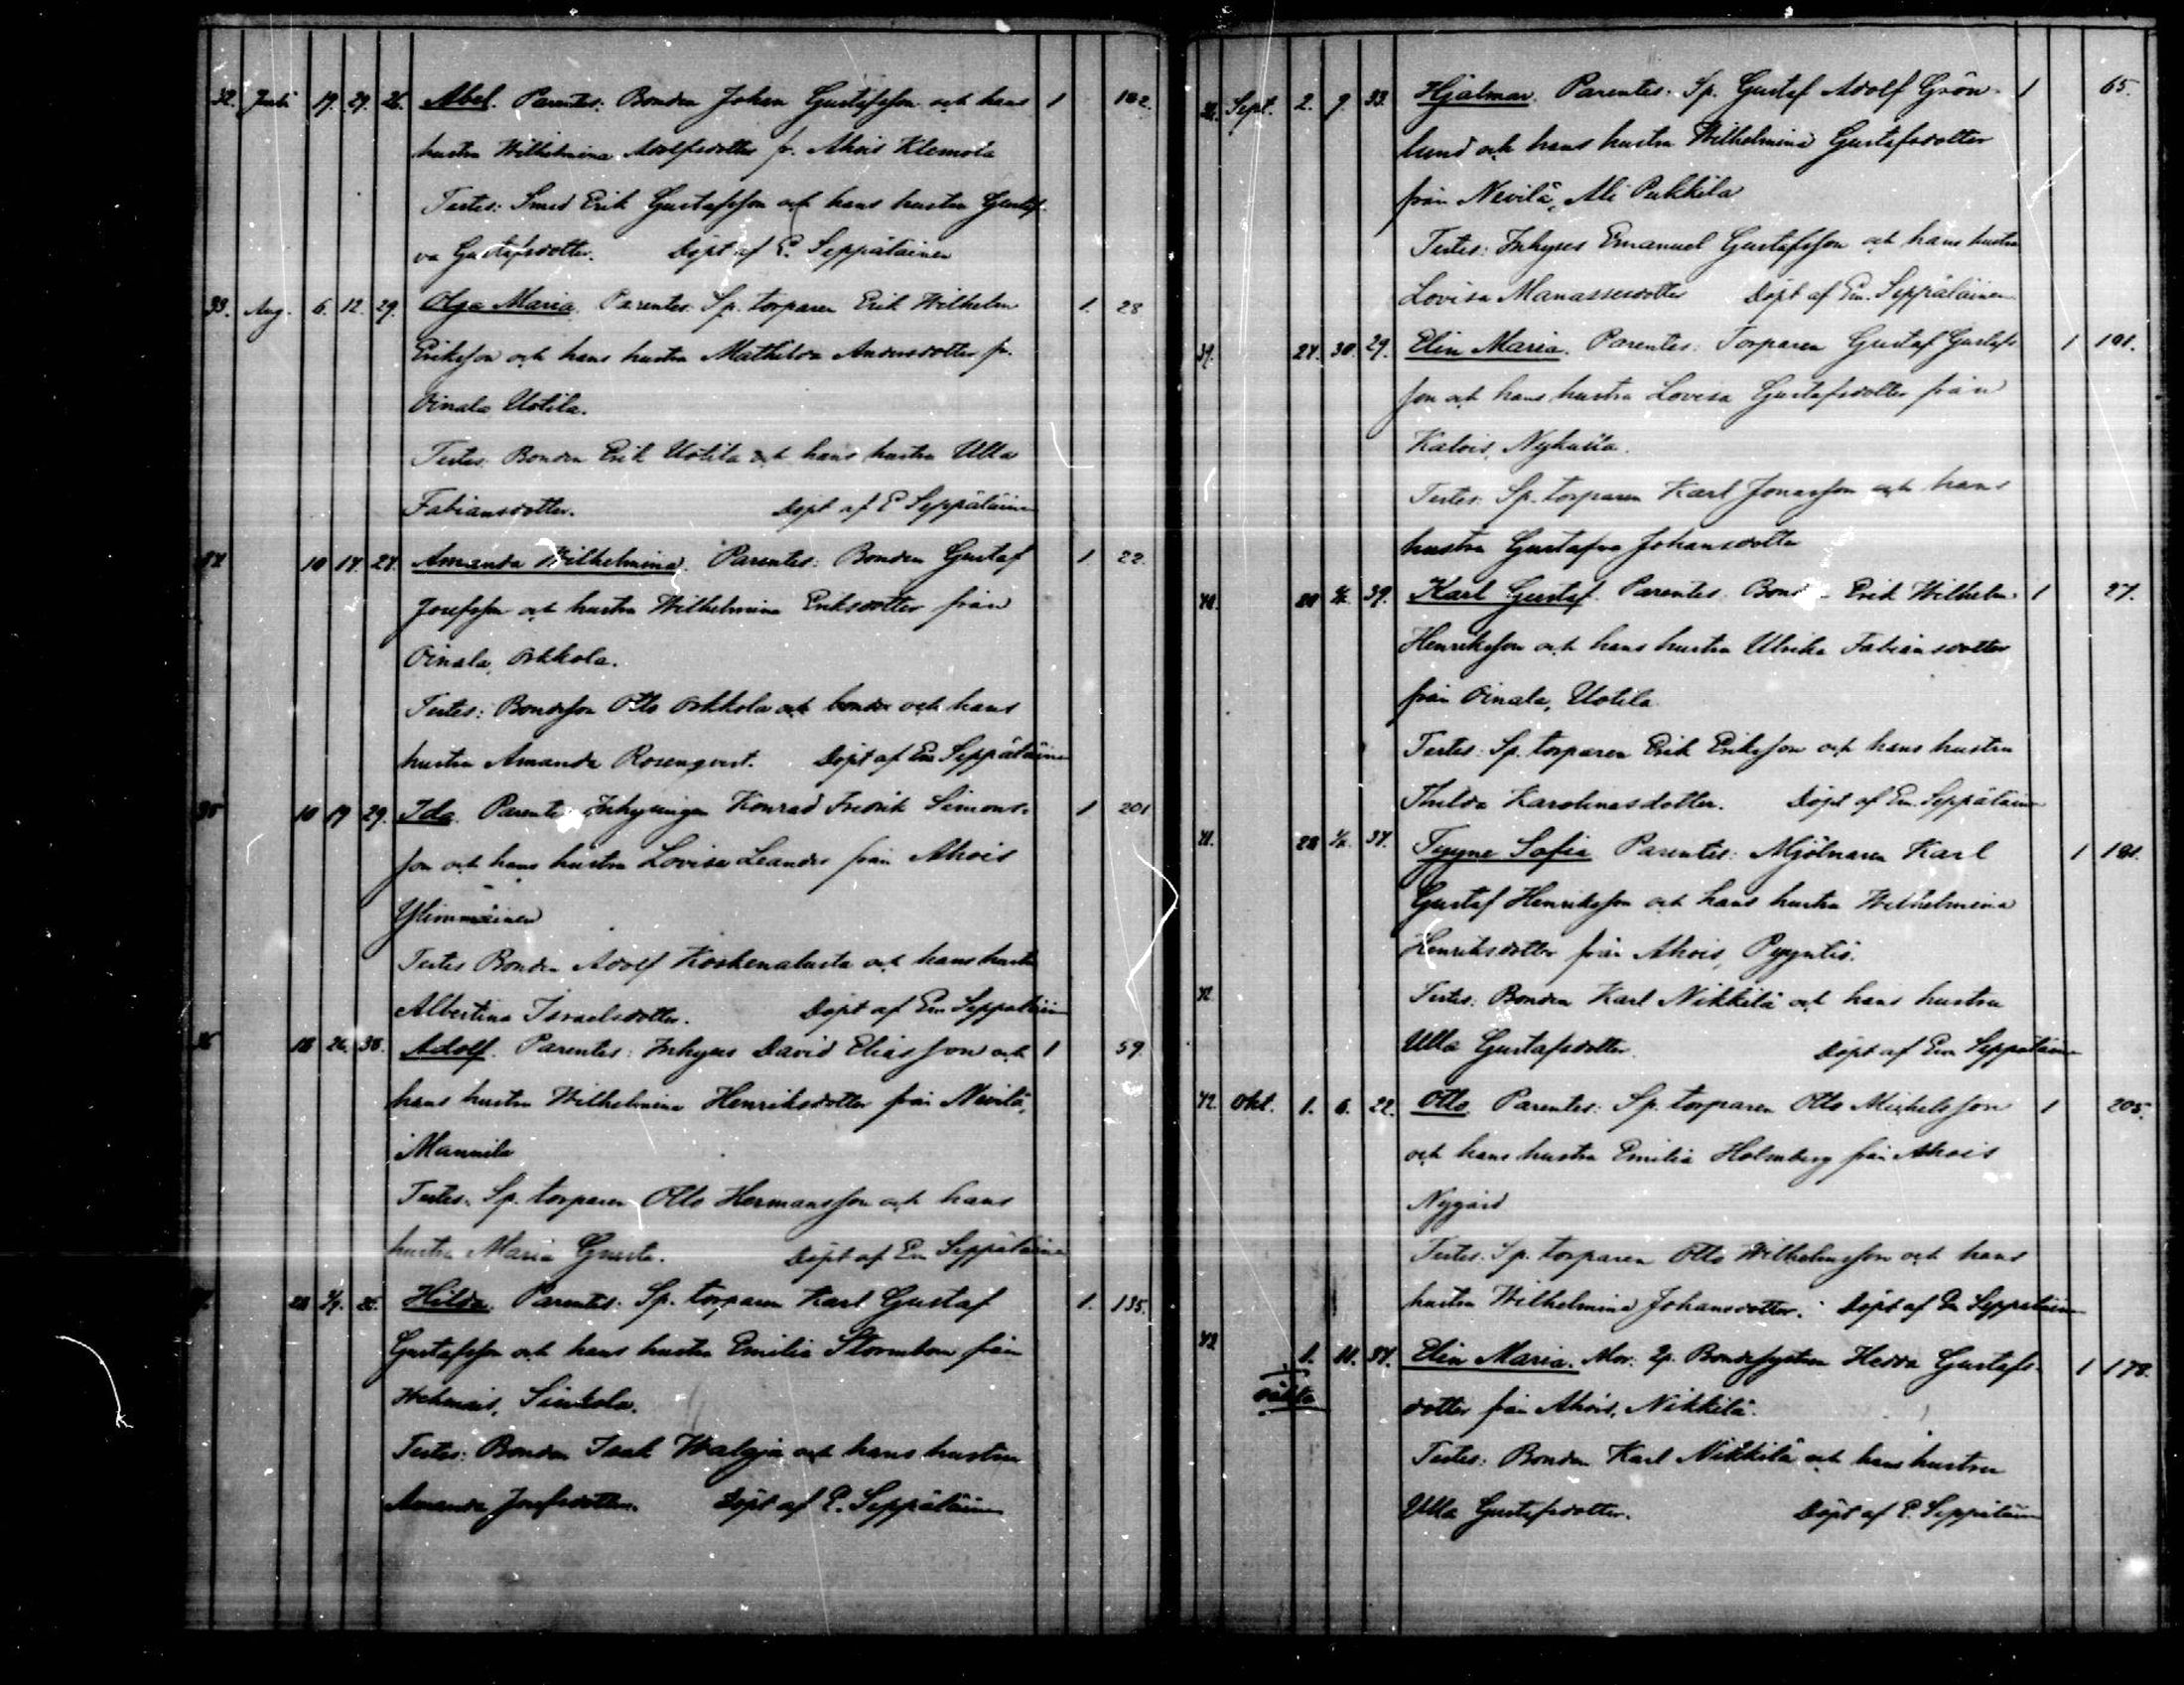 32. Juli 19. 29. 26. Abel. Parentes: Bonden Johan Gustafsson och hans 1 102.
hustru Wilhelmina Adolfsdotter fr. Ahois Klemola
Testes: Smed Erik Gustafsson och hans hustru Gustaf-
va Gustafsdotter. Döpt af E. Seppäläinen
33. Aug. 6. 12. 29. Olga Maria. Parentes: Sp. torparen Erik Wilhelm 1. 28
Eriksson och hans hustru Mathilda Andersdotter fr.
Oinala Uotila.
Testes: Bonden Erik Uotila och hans hustru Ulla
Fabiansdotter. Döpt af E Seppäläinen
34. 10 14. 24. Amanda Wilhelmina. Parentes: Bonden Gustaf 1 22.
Josefsson och hustru Wilhelmina Eriksdotter från
Oinala, Orkkola.
Testes: Bondeson Otto Orkkola och bonden och hans
hustru Amanda Rosenqvist. Döpt af Em Seppäläinen
35 10 19 29. Ida. Parentes: Inhysingen Konrad Fredrik Simons- 1 201
son och hans hustru Lovisa Leander från Ahois
Ylimmäinen
Testes Bonden Adolf Koskenalusta och hans hustru
Albertina Israelsdotter. Döpt af Em Seppäläinen
36 18 26. 38. Adolf. Parentes: Inhyses David Eliasson och 1 59.
hans hustru Wilhelmina Henriksdotter från Nevilä,
Mannila
Testes: Sp. torparen Otto Hermansson och hans
hustru Maria Gusta. Döpt af Em Seppäläinen
28 3/9. 25. Hilda. Parentes: Sp. torparen Karl Gustaf 1. 135.
Gustafsson och hans hustru Emilia Stormbom från
Wehmais, Sinkola.
Testes: Bonden Isak Walpja och hans hustru
Amanda Josefsdotter. Döpt af E. Seppäläinen
38. Sept. 2. 9. 33. Hjalmar. Parentes: Sp. Gustaf Adolf Grön- 1 65.
lund och hans hustru Wilhelmina Gustafsdotter
från Nevilä, Ali Pukkila
Testes: Inhyses Emanuel Gustafsson och hans hustru
Lovisa Manassesdotter Döpt af Em. Seppäläinen
39. 24. 30. 29. Elin Maria. Parentes: Torparen Gustaf Gustafs- 1 191.
son och hans hustru Lovisa Gustafsdotter från
Kalois, Nykulla.
Testes: Sp. torparen Karl Jonasson och hans
hustru Gustafva Johansdotter
40. 20 39. Karl Gustaf. Parentes: Bonden Erik Wilhelm 1 27.
Henriksson och hans hustru Ulrika Fabiansdotter
från Oinala, Uotila.
Testes: Sp. torparen Erik Eriksson och hans hustru
Thilda Karolinasdotter. Döpt af Em. Seppäläinen
41. 28 34. Tyyne Sofia Parentes: Mjölnaren Karl 1 181.
Gustaf Henriksson och hans hustru Wilhelmina
Henriksdotter från Ahois, Pyyntis.
42 Testes: Bonden Karl Nikkilä och hans hustru
Ulla Gustafsdotter. Döpt af Em Seppäläinen
42. Okt. 1. 6. 22. Otto. Parentes: Sp. torparen Otto Michelsson 1 205.
och hans hustru Emilia Holmberg från Ahois
Nygård
Testes: Sp. torparen Otto Wilhelmsson och hans
hustru Wilhelmina Johansdotter. Döpt af Em Seppäläinen
43 1. 11. 34. Elin Maria. Mor: Bondesystern Hedda Gustafs- 1 178.
oäkta dotter från Ahois, Nikkilä.
Testes: Bonden Karl Nikkilä och hans hustru
Ulla Gustafsdotter. Döpt af E. Seppäläinen